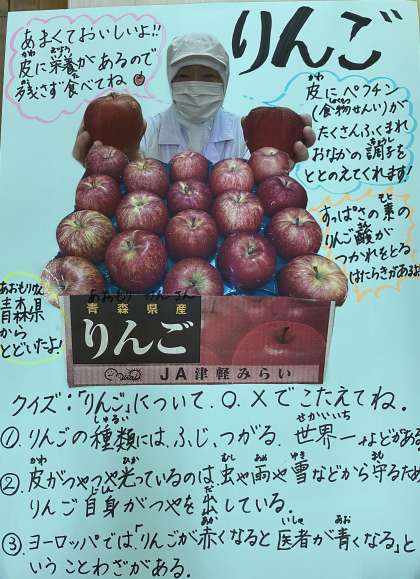 りんご
あまくておいしいよ!!
皮に栄養があるので
残さず食べてね
皮にペクチン
(食物せんい)が
たくさんふくまれ
おなかの調子を
ととのえてくれます!
すっぱさの素の
りんご酸が
つかれをとる
はたらきがあるよ
あおもりけん
青森県
から
とどいたよ!
あおもり けん さん
青森県産
りんご
JA津軽みらい
クイズ:「りんご」について、○、×でこたえてね。
①りんごの種類には、ふじ、つがる、世界一などがある
②皮がつやつや光っているのは、虫や雨や雪などから守るため
りんご自身がつやを出している。
③ヨーロッパでは、「りんごが赤くなると医者が青くなる」と
いうことわざがある。